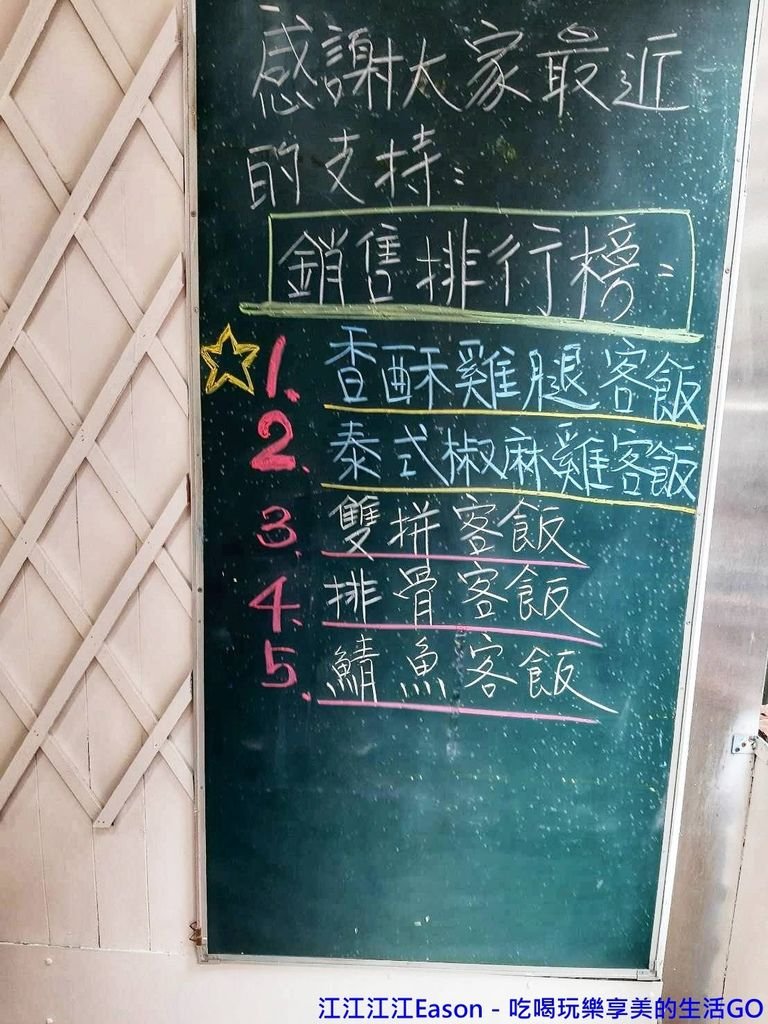 感謝大家最近
的支持：
銷售排行榜：
1. 香酥雞腿客飯
2. 泰式椒麻雞客飯
3. 雙拼客飯
4. 排骨客飯
5. 鯖魚客飯
江江江江Eason - 吃喝玩樂享美的生活GO